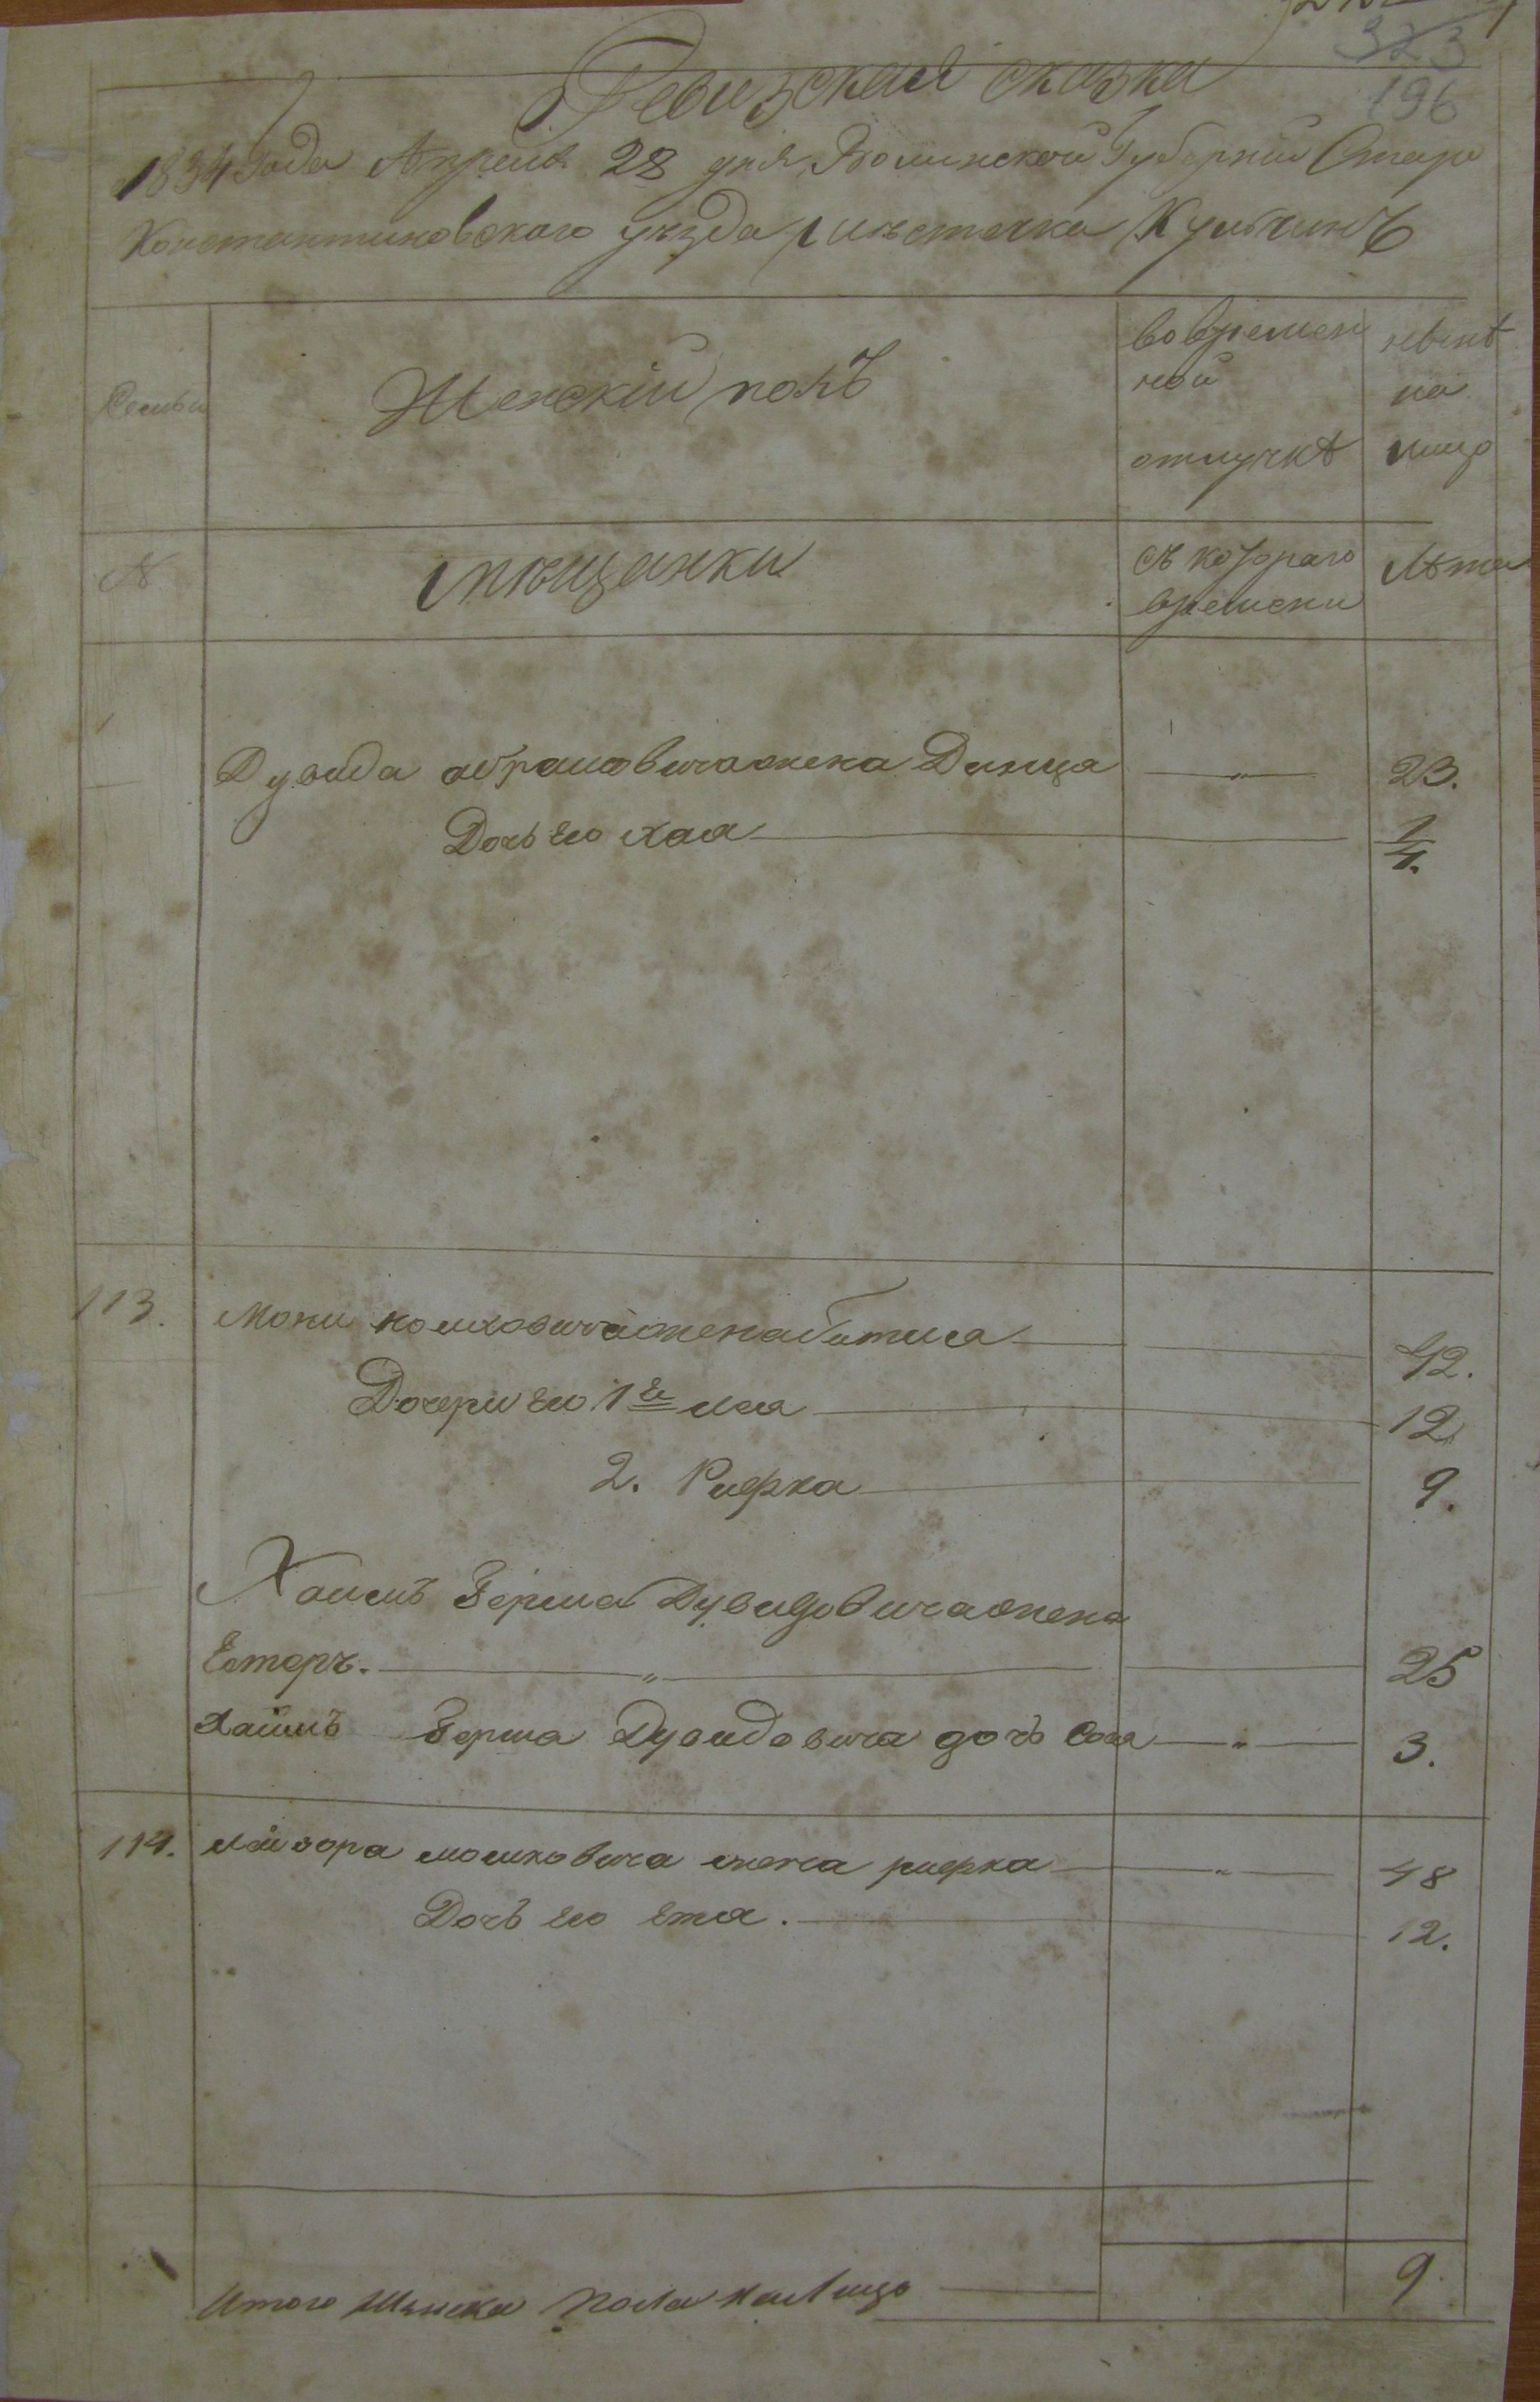 323
196
Ревизская сказка
1834 Года Апреля 28 дня, Волинской Губернии Старо
Константиновского уезда местечка Кульчинъ
Семьи
Женскій полъ
во времен
ной
отлучкѣ
нынѣ
на
лицо
№
мѣщанки
съ котораго
времени
Лѣта
Дувида абрамовича жена Динца 23.
Дочь его хая 1/4.
113. Мони жена батия 42.
Дочери его 1я лея 12
2. Рифка 9.
Хаимъ Герша Дувидовича жена
Естеръ. 25
Хаимъ Герша Дувидовича дочь Сося 3.
114. лейзора мошковича жена рифка 48
Дочь его етя. 12.
Итого Женска пола на лицо 9.